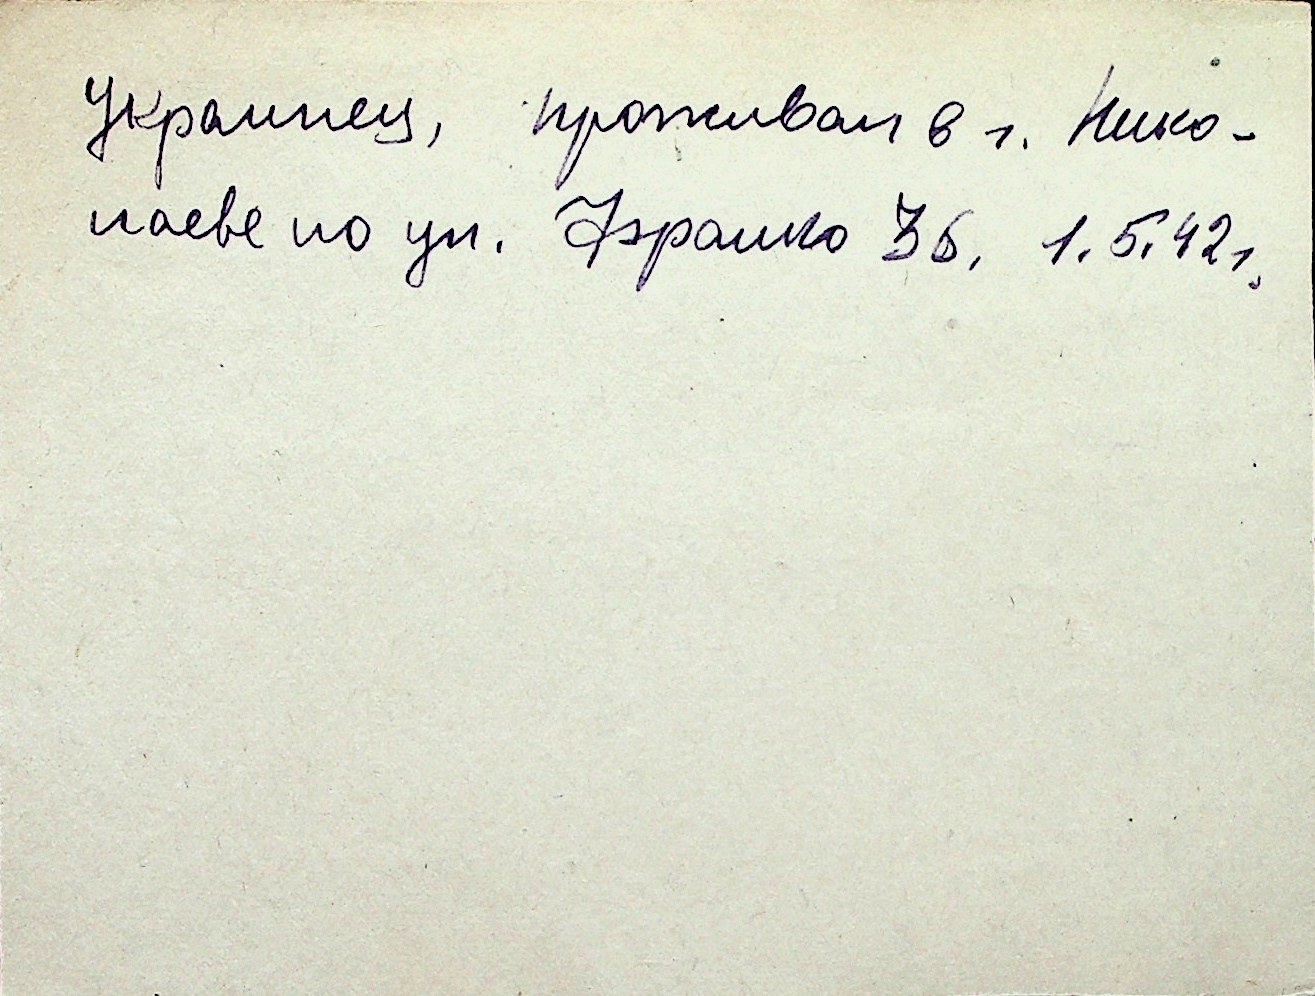 Украинец, проживал в г. Нико-
лаеве по ул. Франко 36, 1.5.42г.